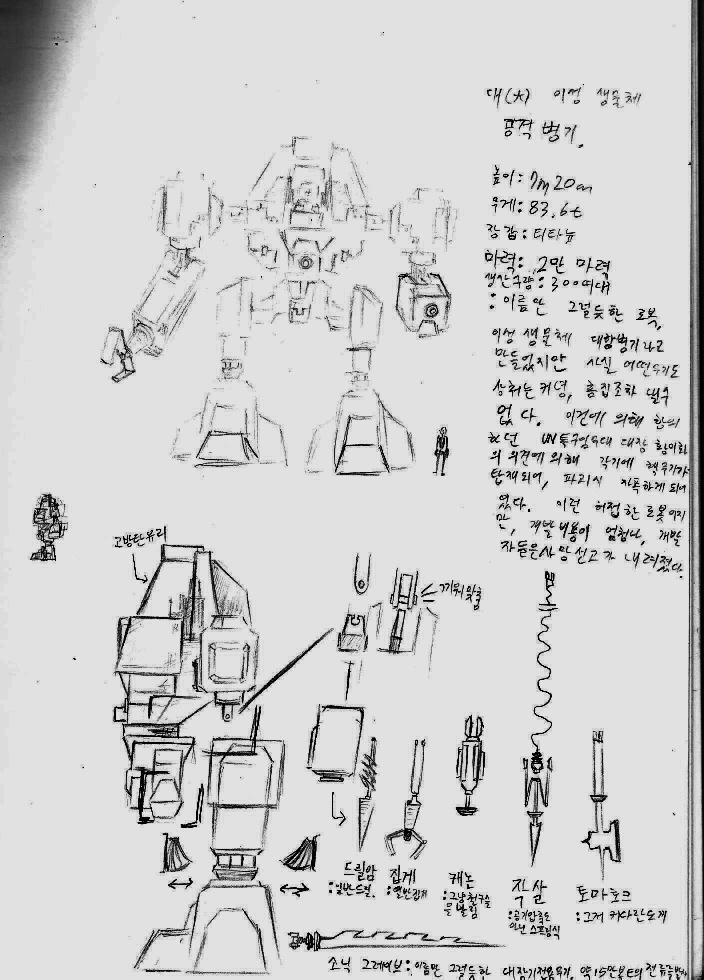 대(大) 이성 생물체
공적 병기.
높이: 7m 20cm
무게: 83.6t
장갑: 티타늄
마력: 2만 마력
생산수량: 300여대
: 이름만 그럴듯한 로봇,
이성 생물체 대항병기라고
만들었지만 사실 어떤수기도
상처는커녕, 흠집조차 낼수
없다. 이건에 의해
하던 UN특수 대장
의 의견에 의해 각기에 핵무기가
탑재되어, 파괴시 자폭하게 되어
있다. 이런 허접한 로봇이지
만, 개발비용이 엄청나, 개발
자들은 사망선고가 내려졌다.
고방탄유리
끼워맞춤
드릴암
:일반드릴.
집게
:일반집게
캐논
:그냥
작살
:공기압축도
아닌 스프링식
토마호크
:그저 커다란도끼
소닉 그레이브: 이름만 그럴듯한 대장기전용무기. 약 15만볼트의